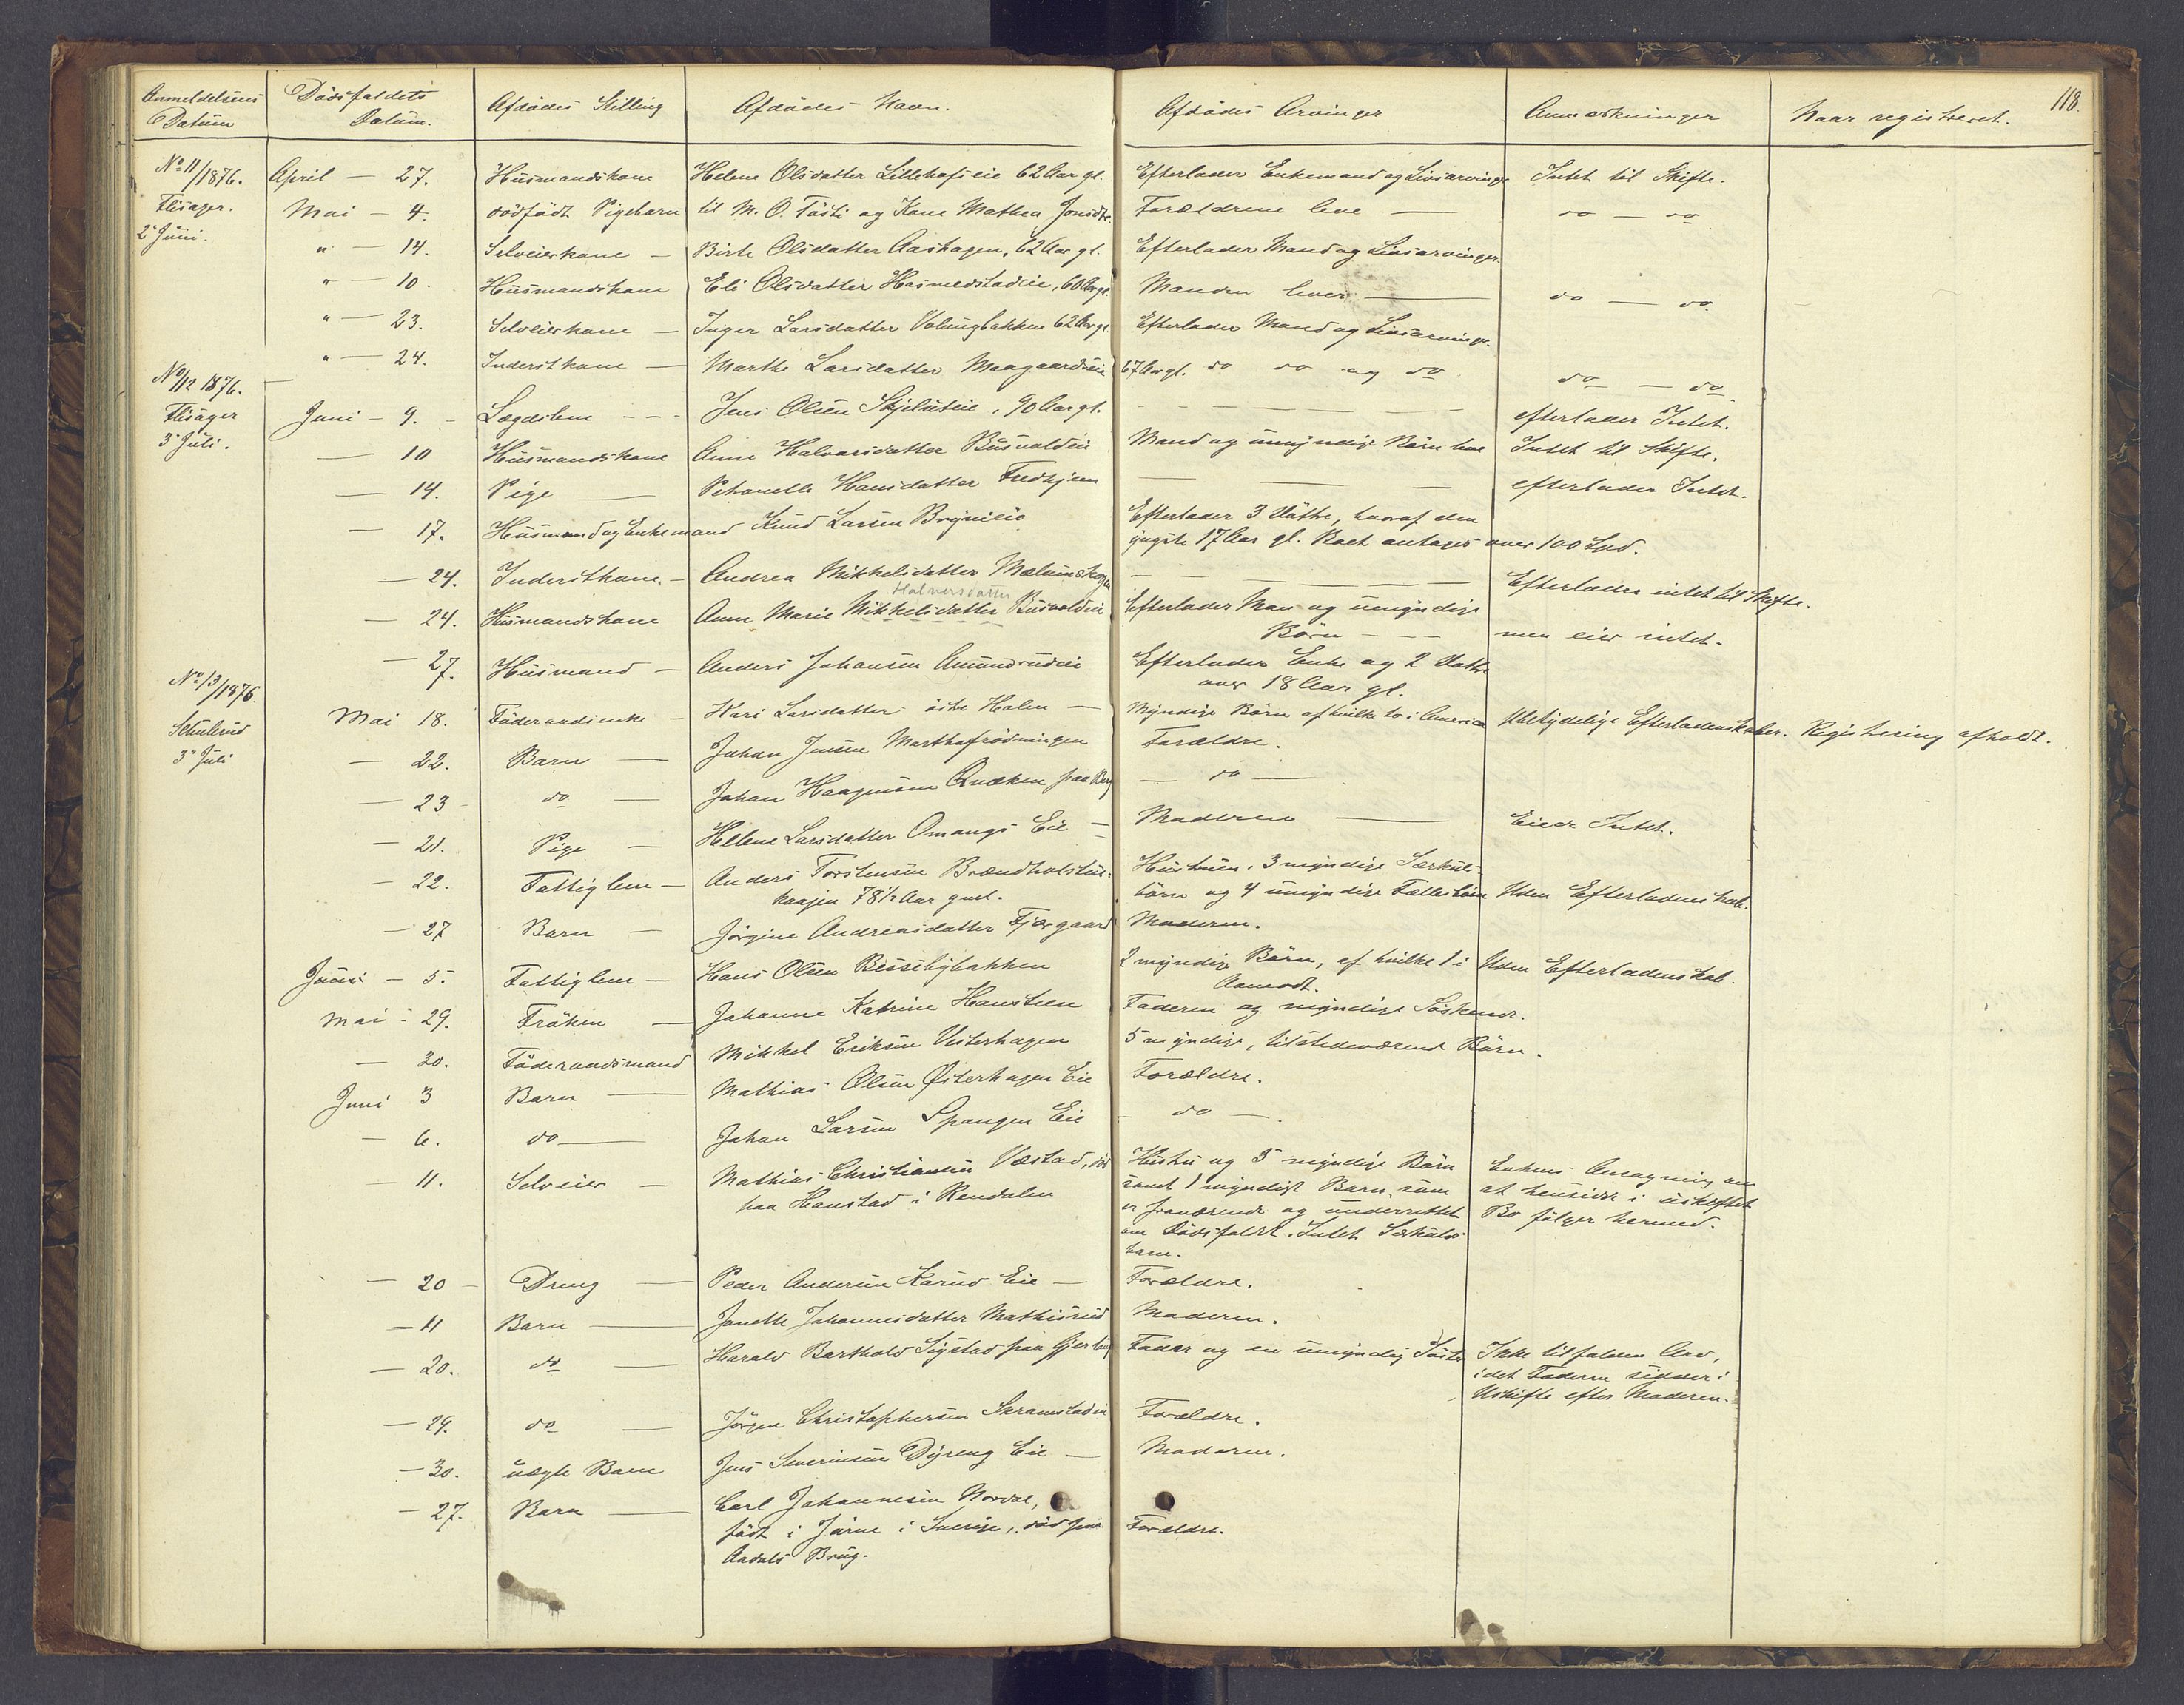 118.
Anmeldelsens Datum Dødsfaldets Datum. Afdødes Stilling Afdødes Navn. Afdødes Arvinger Anmærkninger Naar registreret.
No 11/1876. April — 27. Husmandskone Helene Olsdatter Lillehofseie 62 Aar gl. Efterlader Enkemand og Livsarvinge Intet til Skifte.
Flisager. Mai — 4. dödfödt Pigebarn til M. O. Tøsti og Kone Mathea Jonsdtr. Forældrene leve — do — do
2 Juni. " — 14. Selveierkone — Birte Olsdatter Aashagen, 62 Aar gl. Efterlader Mand og Livsarvinger.
" — 10. Husmandskone Eli Olsdatter Hasmedstadeie, 60 Aar gl. Manden lever — do — do
" — 23. Selveierkone — Inger Larsdatter Volungbakken 62 Aar gl. Efterlader Mand og Livsarvinge.
" — 24. Inderstkone — Marthe Larsdatter Maagaardseie 67 Aar gl. do do og do do — do
No 12 1876.
Flisager Juni — 9. Lægdslem — Jens Olsen Skjelseie, 90 Aar gl. — efterlader Intet.
3 Juli. — 10 Husmandskone Anne Halvorsdatter Busvoldeie Mand og umyndige Börn leve Intet til Skifte.
— 14. Pige — Petronelle Hansdatter Fredhjem — efterlader Intet.
— 17. Husmand og Enkemand Knud Larsen Brynieie Efterlader 3 Döttre, hvoraf den
yngste 17 Aar gl. Boet antages over 100 Spd.
— 24. Inderstkone — Andrea Mikkelsdatter Mælumskogen — Efterlader intet til Skifte.
Halvorsdatter
— 24. Husmandskone Anne Marie Mikkelsdatter Busvoldeie Efterlader Man og umyndige
Börn — men eier intet.
— 27. Husmand — Anders Johansen Amundrudeie Efterlader Enke og 2 Döttre
over 18 Aar gl.
No 13/1876.
Schulerud Mai 18. Föderaadsenke — Kari Larsdatter östre Holen — Myndige Börn af hvilke to i America Ubetydelige Efterladenskaber. Registrering afholdt.
3 Juli — 22. Barn — Johan Jensen Marthasrödningen Forældre.
— 23 — do — Johan Haagensen Qvæken paa Berg — do —
— 21. Pige — Helene Larsdatter Omangs Eie — Moderen — Eiede Intet.
— 22. Fattiglem — Anders Torstensen Brændholstue- Hustruen, 3 myndige Særkuls-
haagen 78½ Aar gml. börn og 4 umyndige Fællesbörn Uden Efterladenskab.
— 27 Barn — Jörgine Andreasdatter Fjærgaard Moderen.
Juni — 5. Fattiglem — Hans Olsen Bessebybakken 2 myndige Börn, af hvilke 1 i Uden Efterladenskab.
Aamodt.
Mai — 29. Fröken — Johanne Katrine Hansteen Faderen og myndige Söskende.
— 30. Föderaadsmand Mikkel Eriksen Vesterhagen 5 myndige, tilstedeværende Börn.
Juni 3 Barn — Mathias Olsen Østerhagen Eie Forældre.
— 6. do — Johan Larsen Spangen Eie — do —
— 11. Selveier — Mathias Christiansen Vestad, död Hustru og 5 myndige Börn Enkens Ansøgning om
paa Hanstad i Rendalen samt 1 myndigt Barn, som at hensidde i uskiftet
er fraværende og underrettet Bo fölger hermed.
om Dödsfaldet. Intet Særkuls-
barn.
— 20 — Dreng — Peder Andersen Karud Eie — Forældre.
— 11 Barn — Janette Johannesdatter Mathisrud Moderen.
— 20. do — Harald Barthold Sigstad paa Gjerlug Fader og en umyndig Söster Ikke tilfalden Arv,
idet Faderen sidder i
Uskifte efter Moderen.
— 29. do — Jörgen Christophersen Skramstadeie Forældre.
— 30. uægte Barn Jens Severinsen Dyreng Eie — Moderen.
— 27. Barn — Carl Johannesen Norvæl,
födt i Järne i Sverige, död paa Forældre.
Aadals Brug.